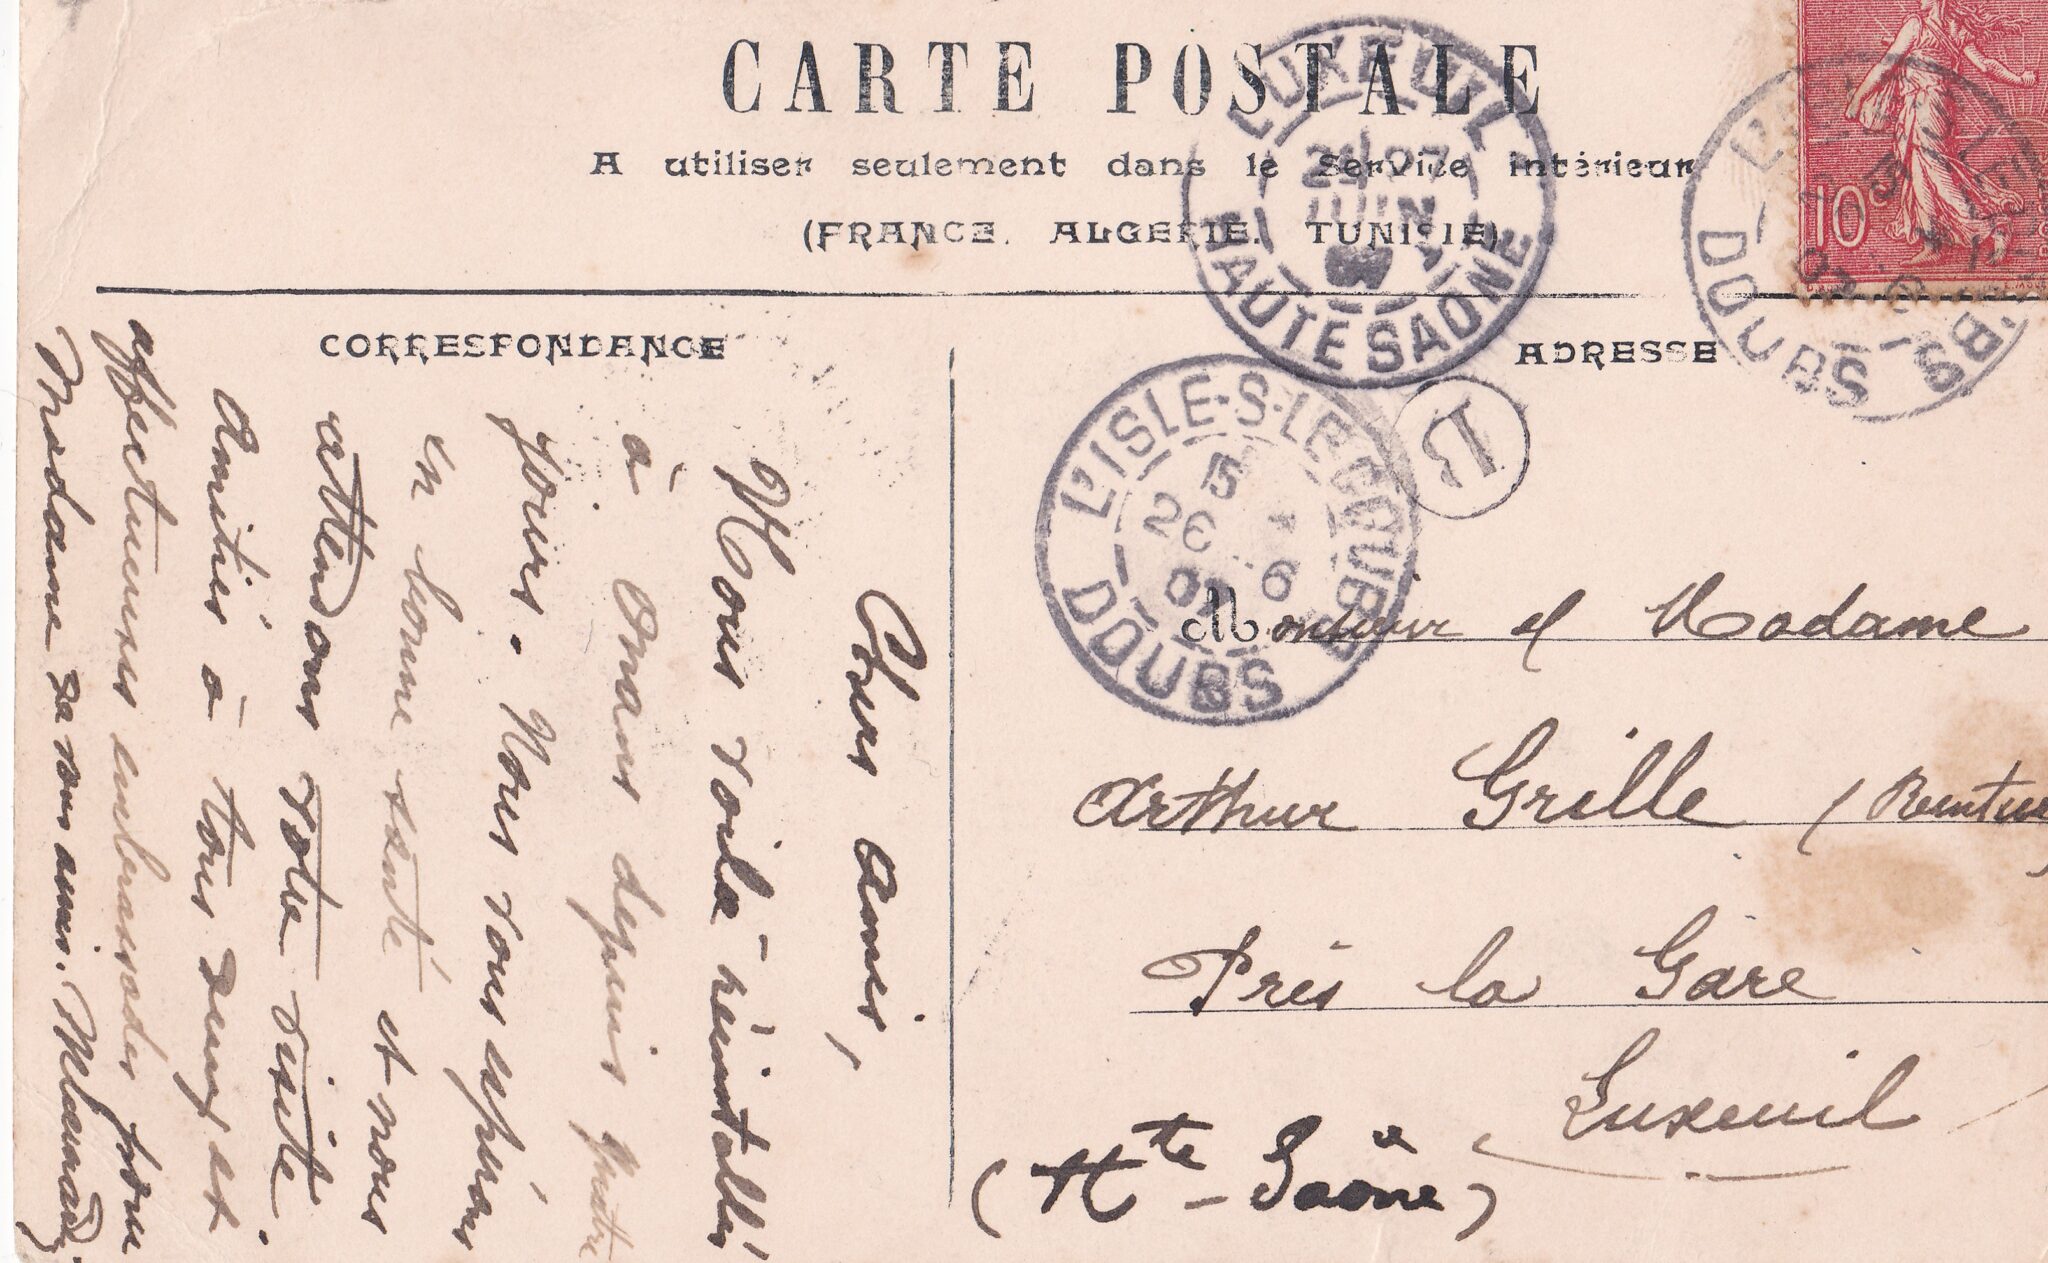 CARTE POSTALE
A utiliser seulement dans le Service intérieur
(FRANCE. ALGERIE. TUNISIE)
CORRESPONDANCE
ADRESSE
LUXEUIL
JUIN
HAUTE SAONE
L'ISLE-S-LE-DOUBS
5
26 6
07
DOUBS
DOUBS
10c
B
Chers amis,
Nous voilà réinstallés
à Onans depuis quatre
jours. Nous vous espérons
en bonne santé et nous
attendons votre visite.
Amitiés à tous deux et
affectueuses embrassades pour
Madame de vos amis.
Monsieur et Madame
Arthur Grille (Rentier
Près la Gare
Luxeuil
(Hte-Saône)